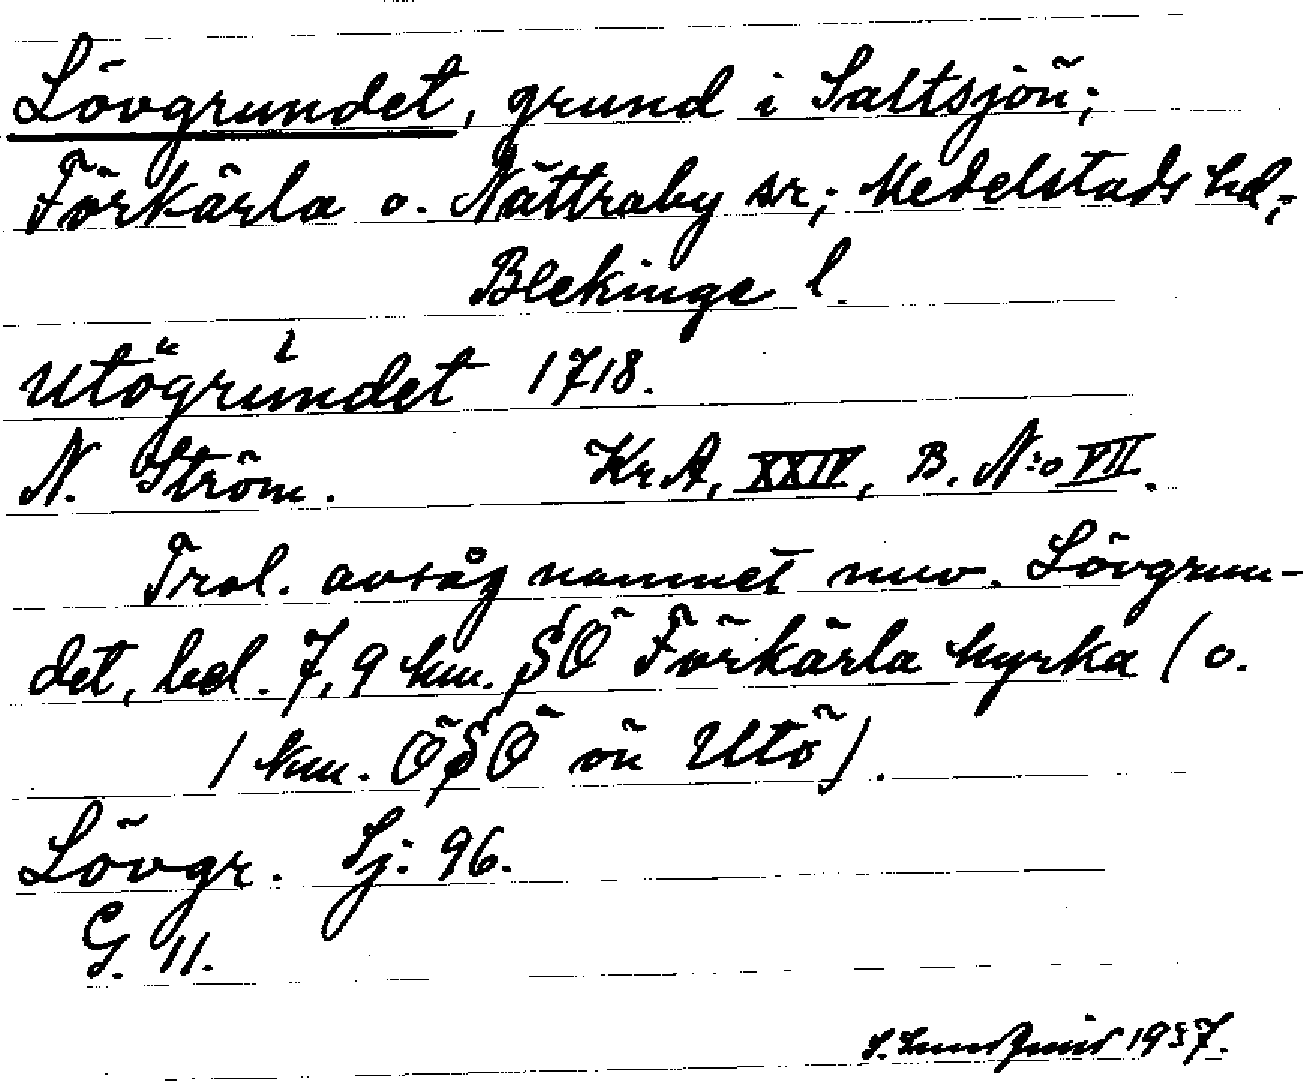 Lövgrundet, grund i Saltsjön;
Förkärla o. Nättraby sr; Medelstads hd;
Blekinge l.
Utögrundet 1718.
N. Ström. Kr A, XXIV, B. N:o VII.
Trol. avsåg namnet nuv. Lövgrun-
det, bel. 7,9 km. SÖ Förkärla kyrka (o.
1 km. ÖSÖ om Utö).
Lövgr. Sj: 96.
G. 11.
1937.